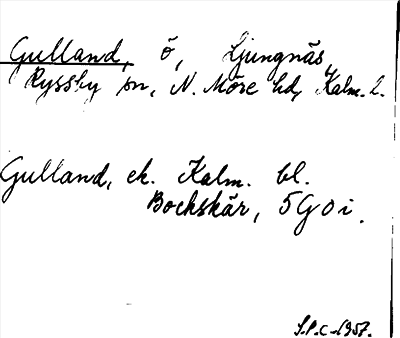 Gulland, ö, Ljungnäs,
Ryssby sn, N. Möre hd, Kalm. l.
Gulland, ek. Kalm. bl.
Bochskär, 5G0i.
S.P.C. 1957.